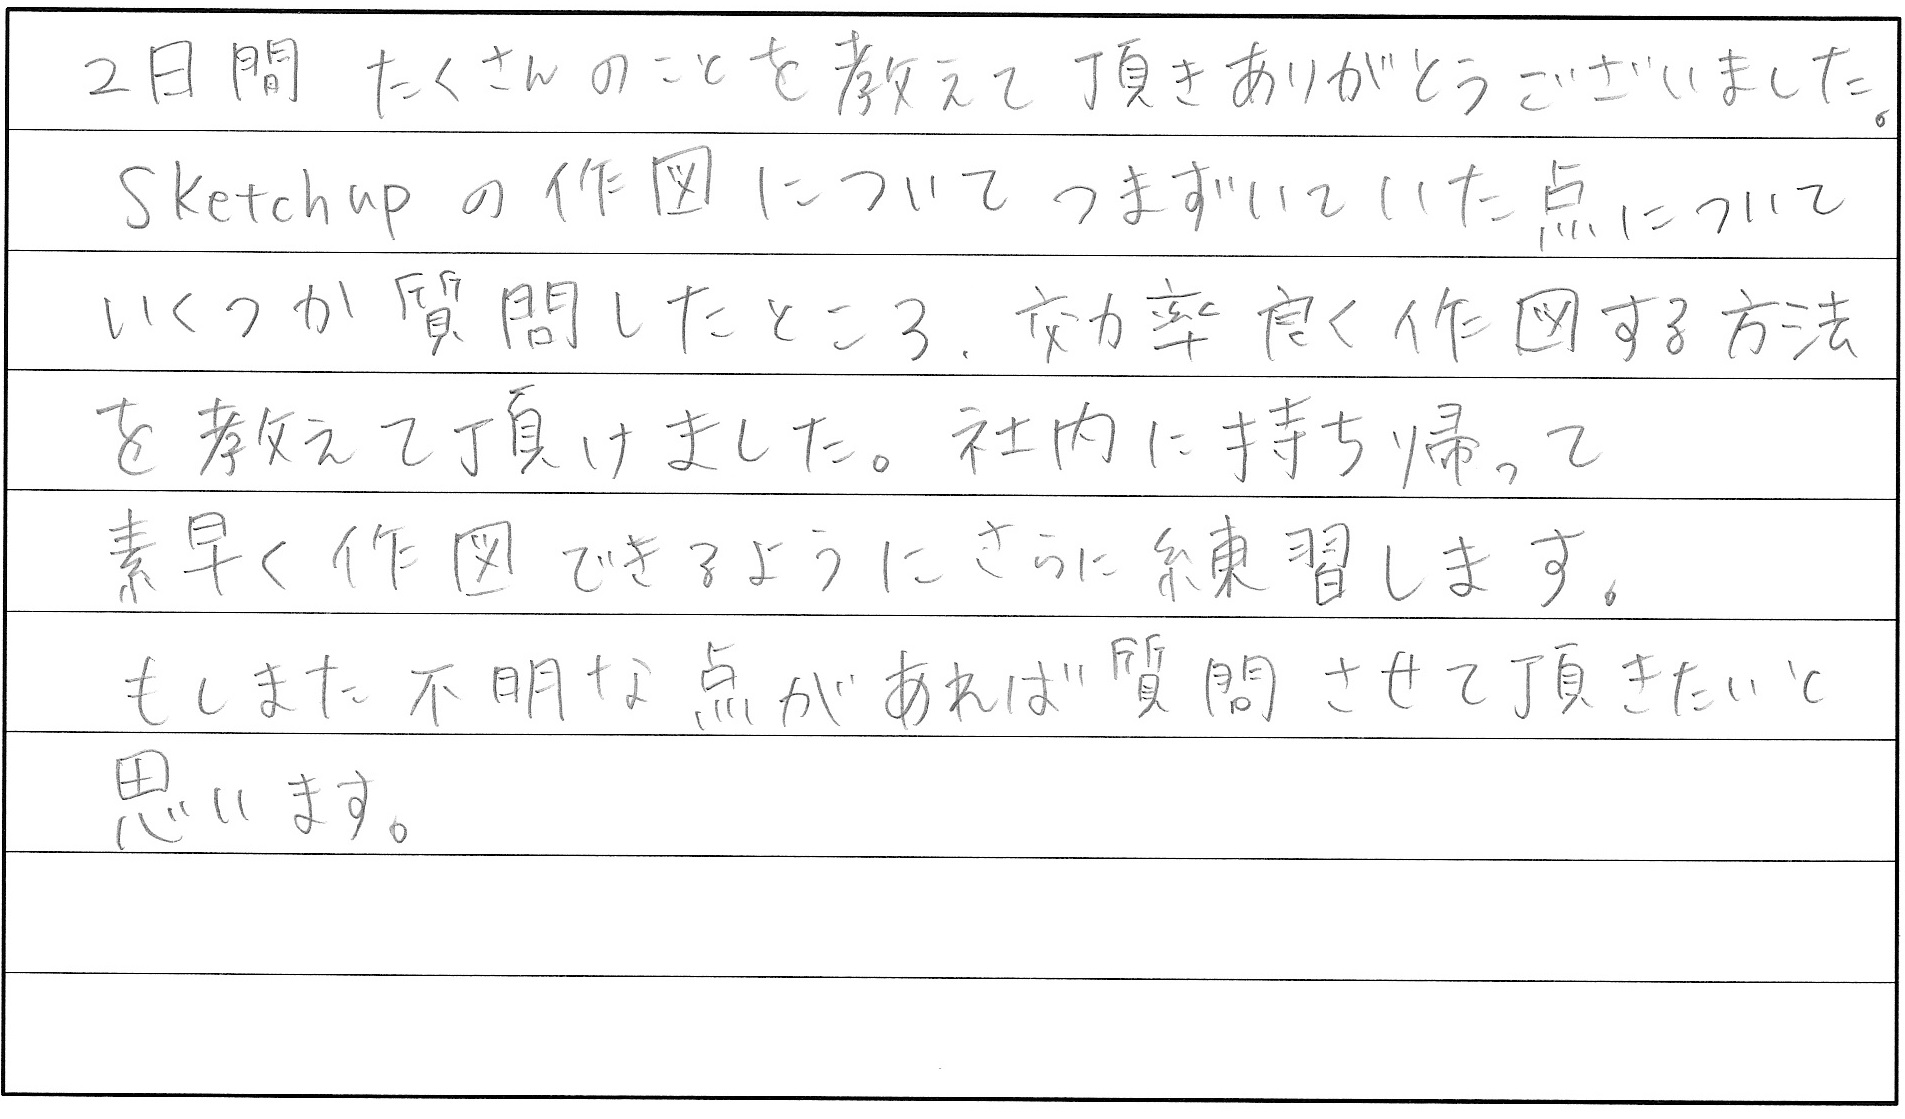 2日間 たくさんのことを教えて頂きありがとうございました。
Sketchupの作図についてつまずいていた点について
いくつか質問したところ、効率良く作図する方法
を教えて頂けました。社内に持ち帰って
素早く作図できるようにさらに練習します。
もしまた不明な点があれば質問させて頂きたいと
思います。